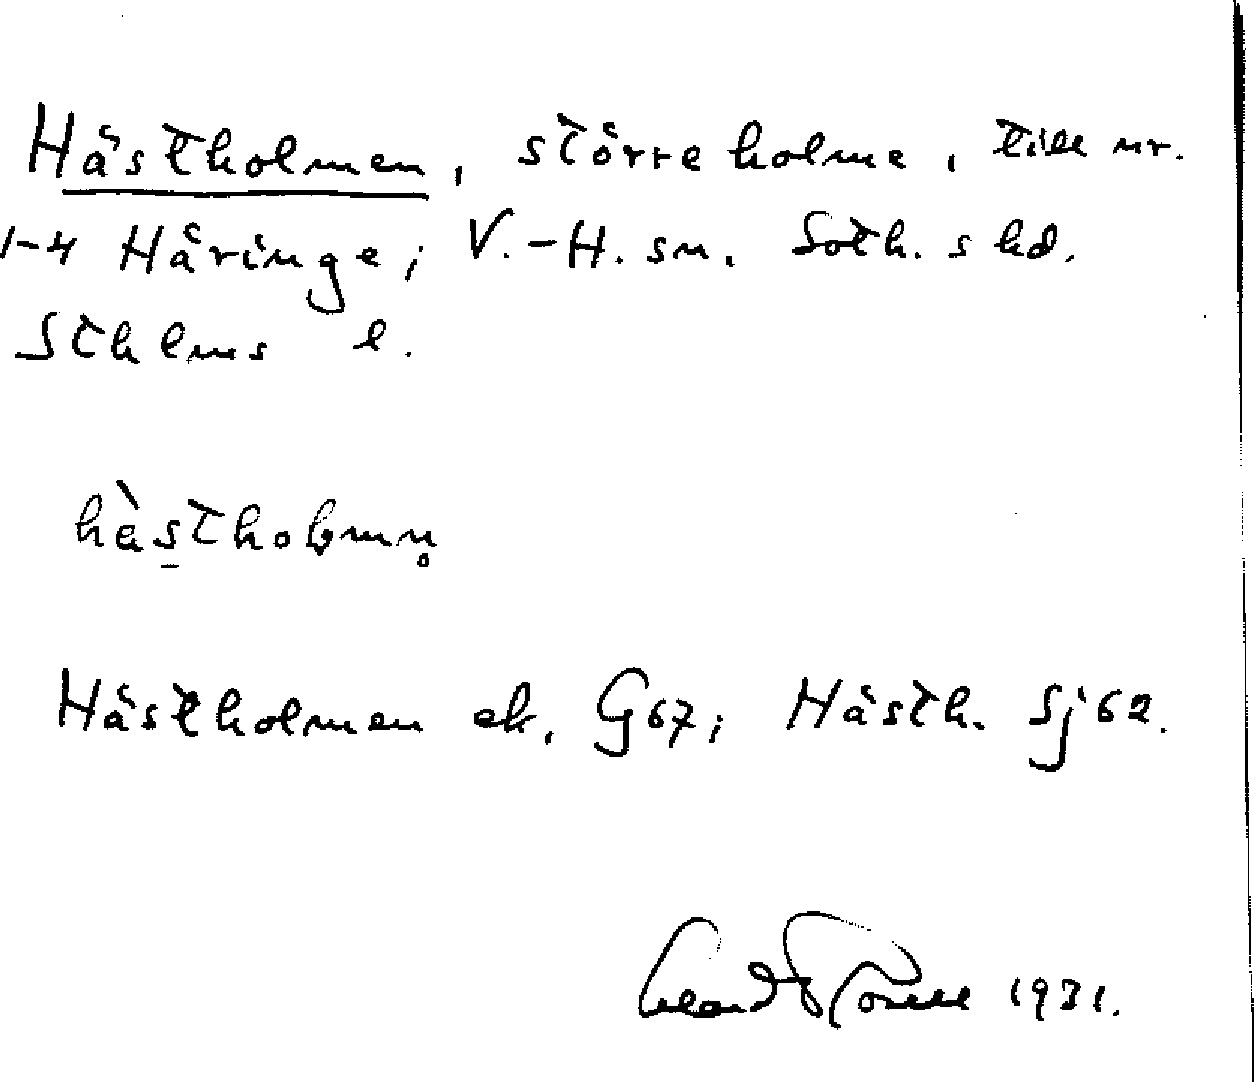 Hästholmen, större holme, till nr.
1-4 Häringe; V.-H. sn. Soth. s hd.
Sthlms l.
Hästholmen ek. G67; Hästh. Sj 62.
1931.